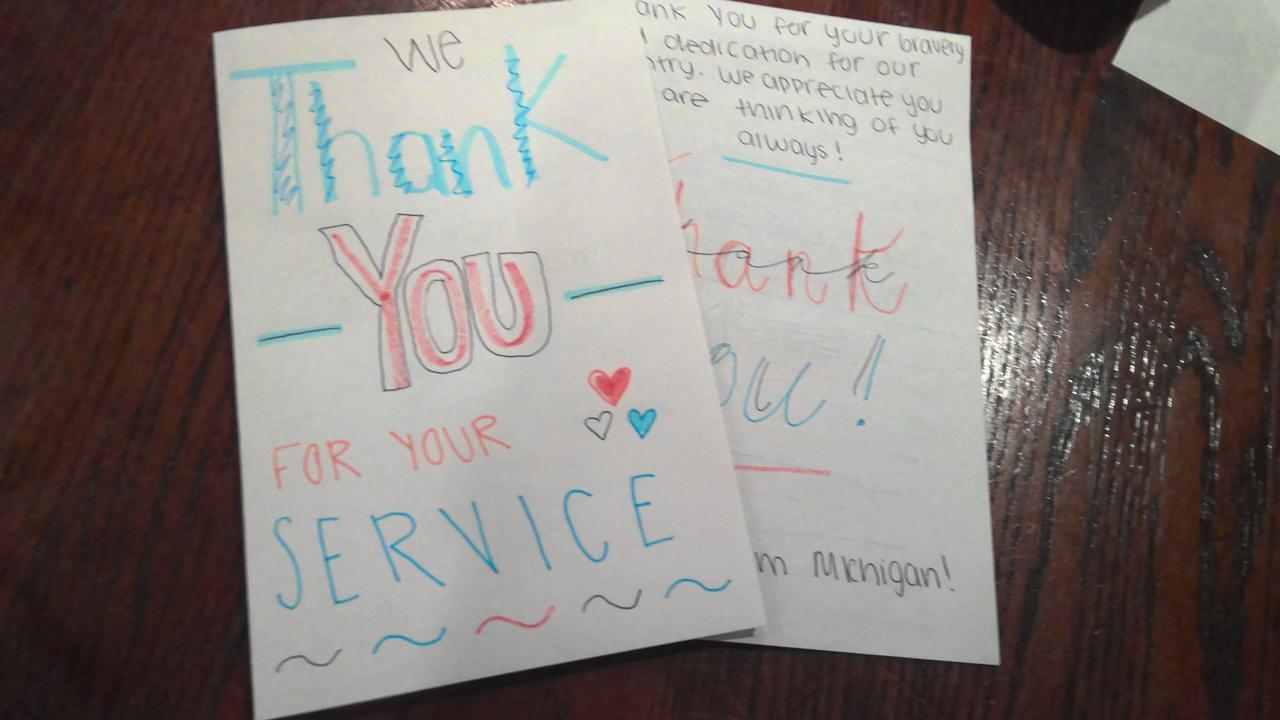 We
Thank
You
FOR YOUR
SERVICE
ank you for your bravery
dedication for our
ntry. We appreciate you
are thinking of you
always!
hank
ou!
m Michigan!